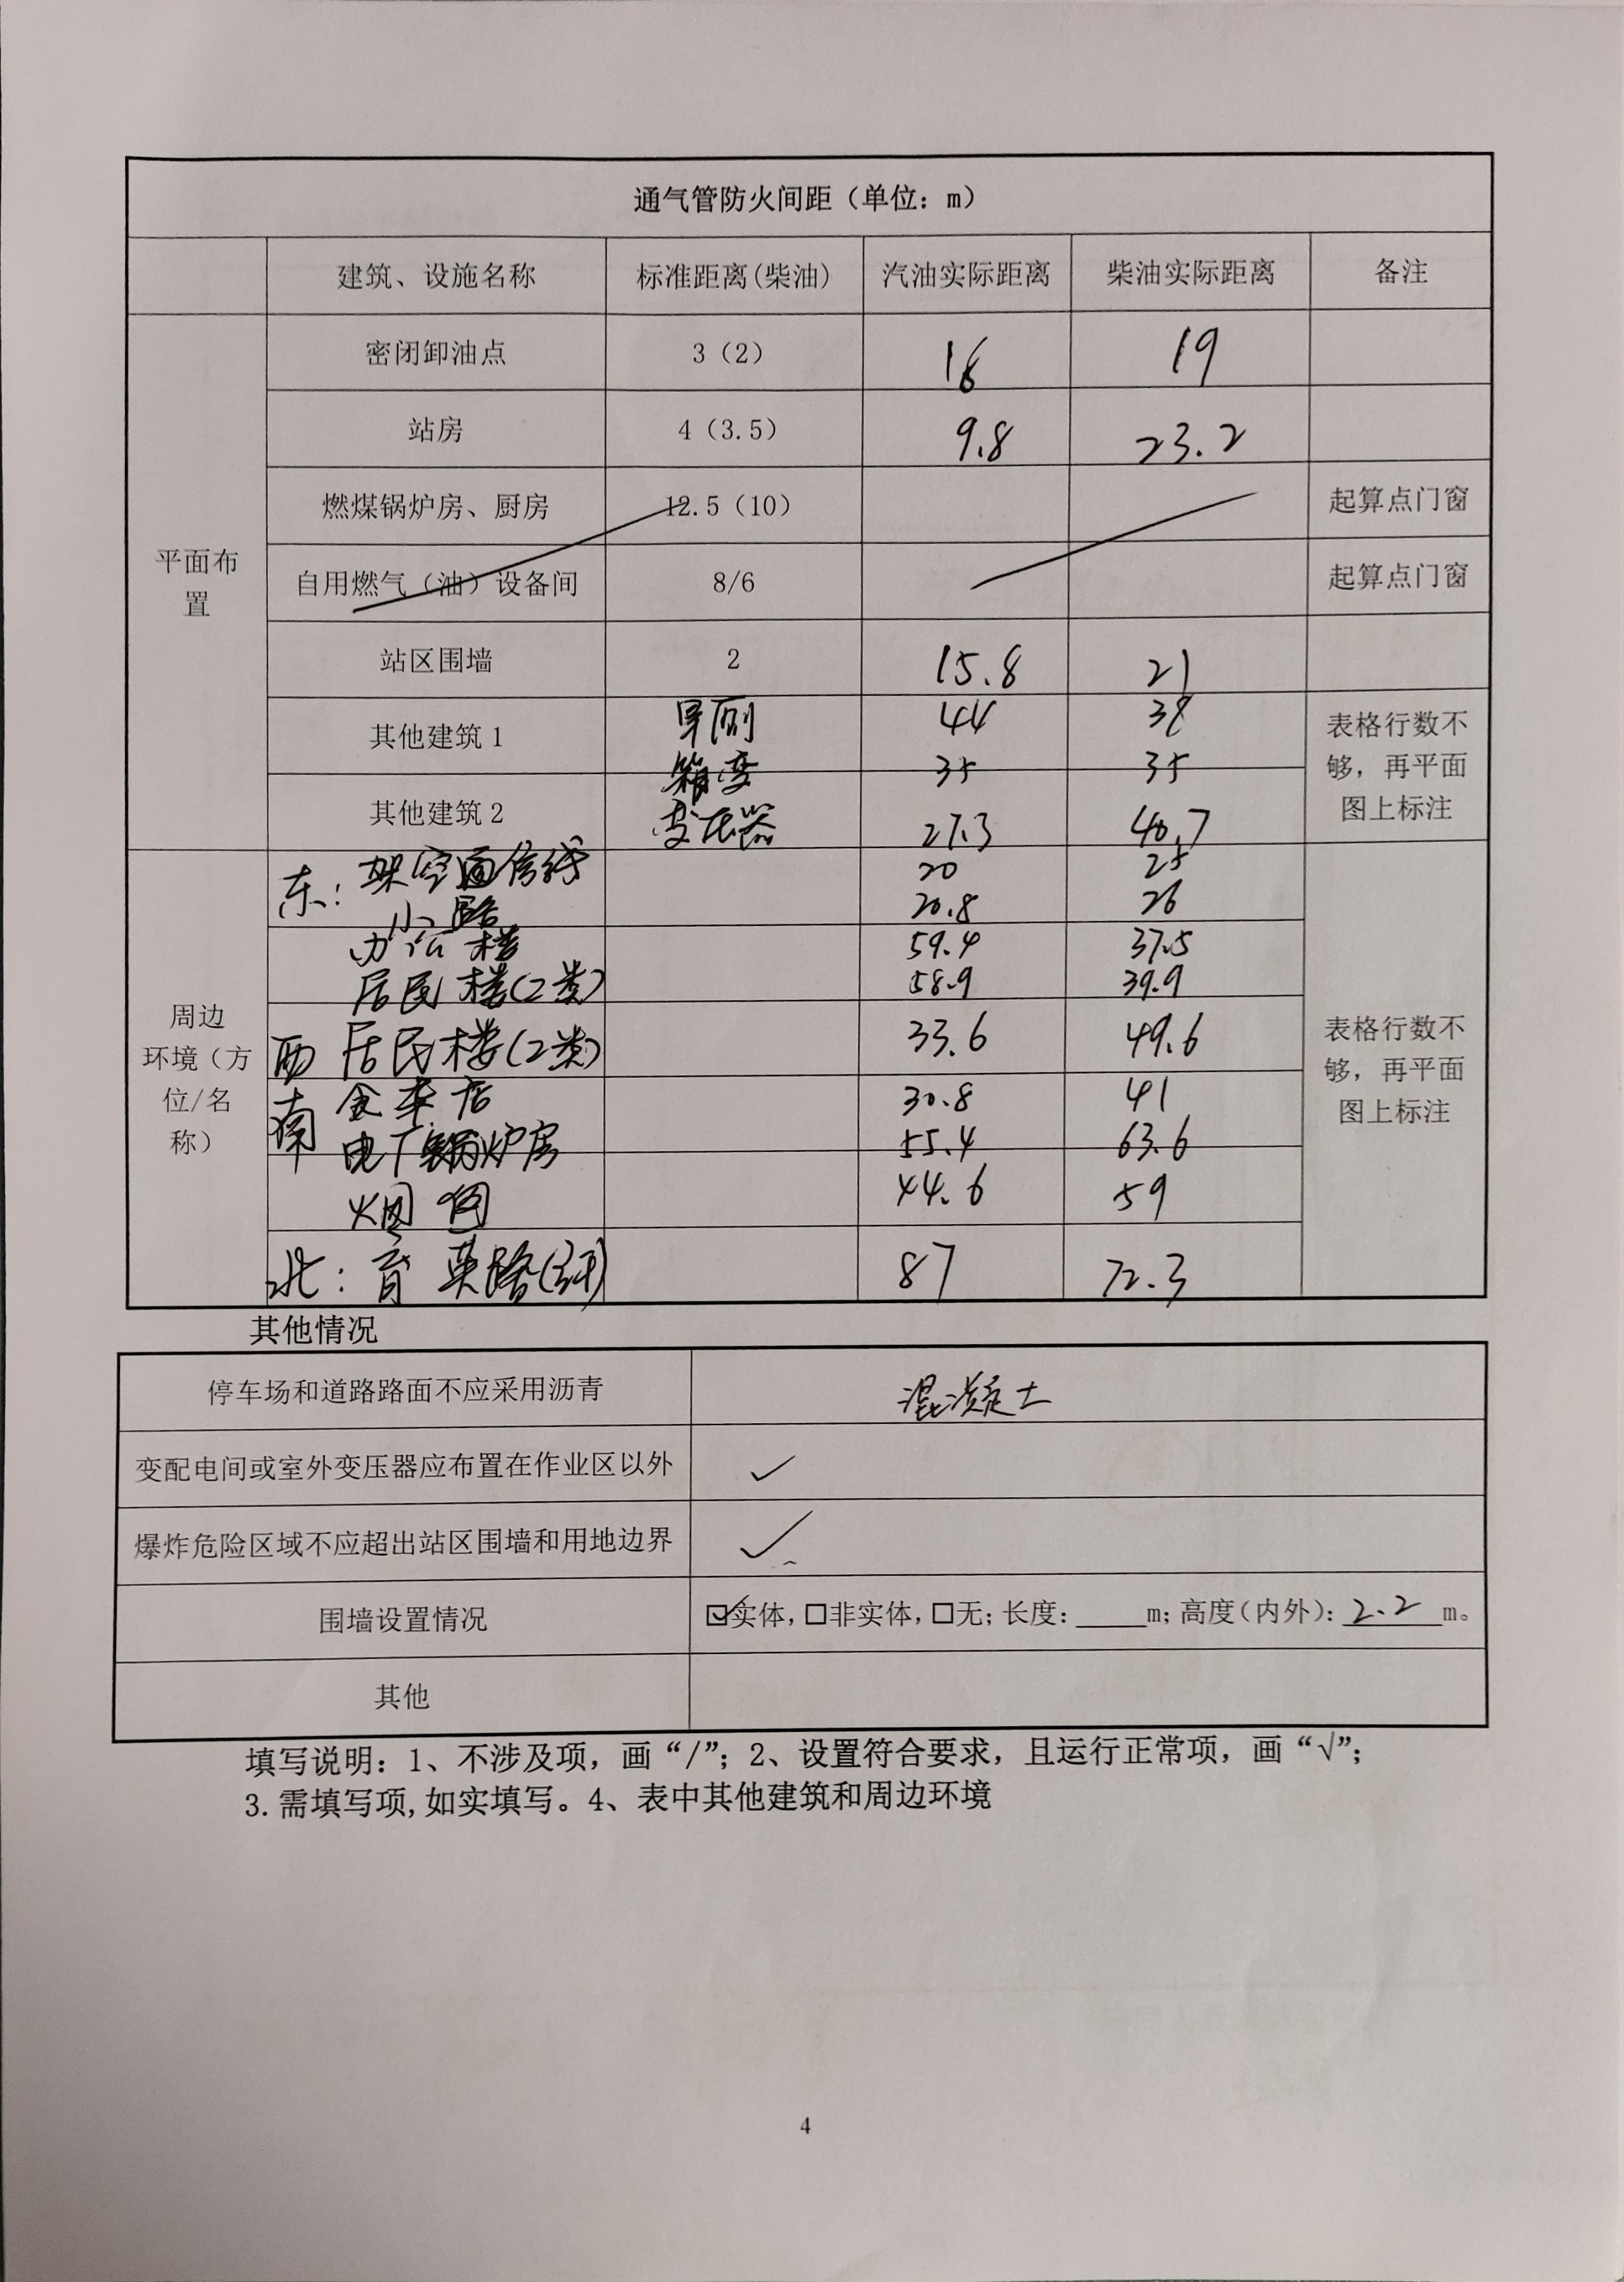 通气管防火间距（单位：m）
建筑、设施名称 标准距离(柴油) 汽油实际距离 柴油实际距离 备注
平面布置
密闭卸油点 3（2） 16 19
站房 4（3.5） 9.8 23.2
燃煤锅炉房、厨房 12.5（10） 起算点门窗
自用燃气（油）设备间 8/6 起算点门窗
站区围墙 2 15.8 21
其他建筑1 旱厕 44 38
箱变 35 35
其他建筑2 变压器 27.3 40.7
表格行数不够，再平面图上标注
周边环境（方位/名称）
东：架空通信线 20 25
小路 20.8 26
办公楼 59.4 37.5
居民楼(2类) 58.9 39.9
西 居民楼(2类) 33.6 49.6
南 30.8 41
电厂锅炉房 55.4 63.6
烟囱 44.6 59
北：育英路 87 72.3
表格行数不够，再平面图上标注
其他情况
停车场和道路路面不应采用沥青 混凝土
变配电间或室外变压器应布置在作业区以外 ✓
爆炸危险区域不应超出站区围墙和用地边界 ✓
围墙设置情况 ☑实体，□非实体，□无；长度：_____m；高度（内外）：2.2m。
其他
填写说明：1、不涉及项，画“/”；2、设置符合要求，且运行正常项，画“√”；
3.需填写项,如实填写。4、表中其他建筑和周边环境
4